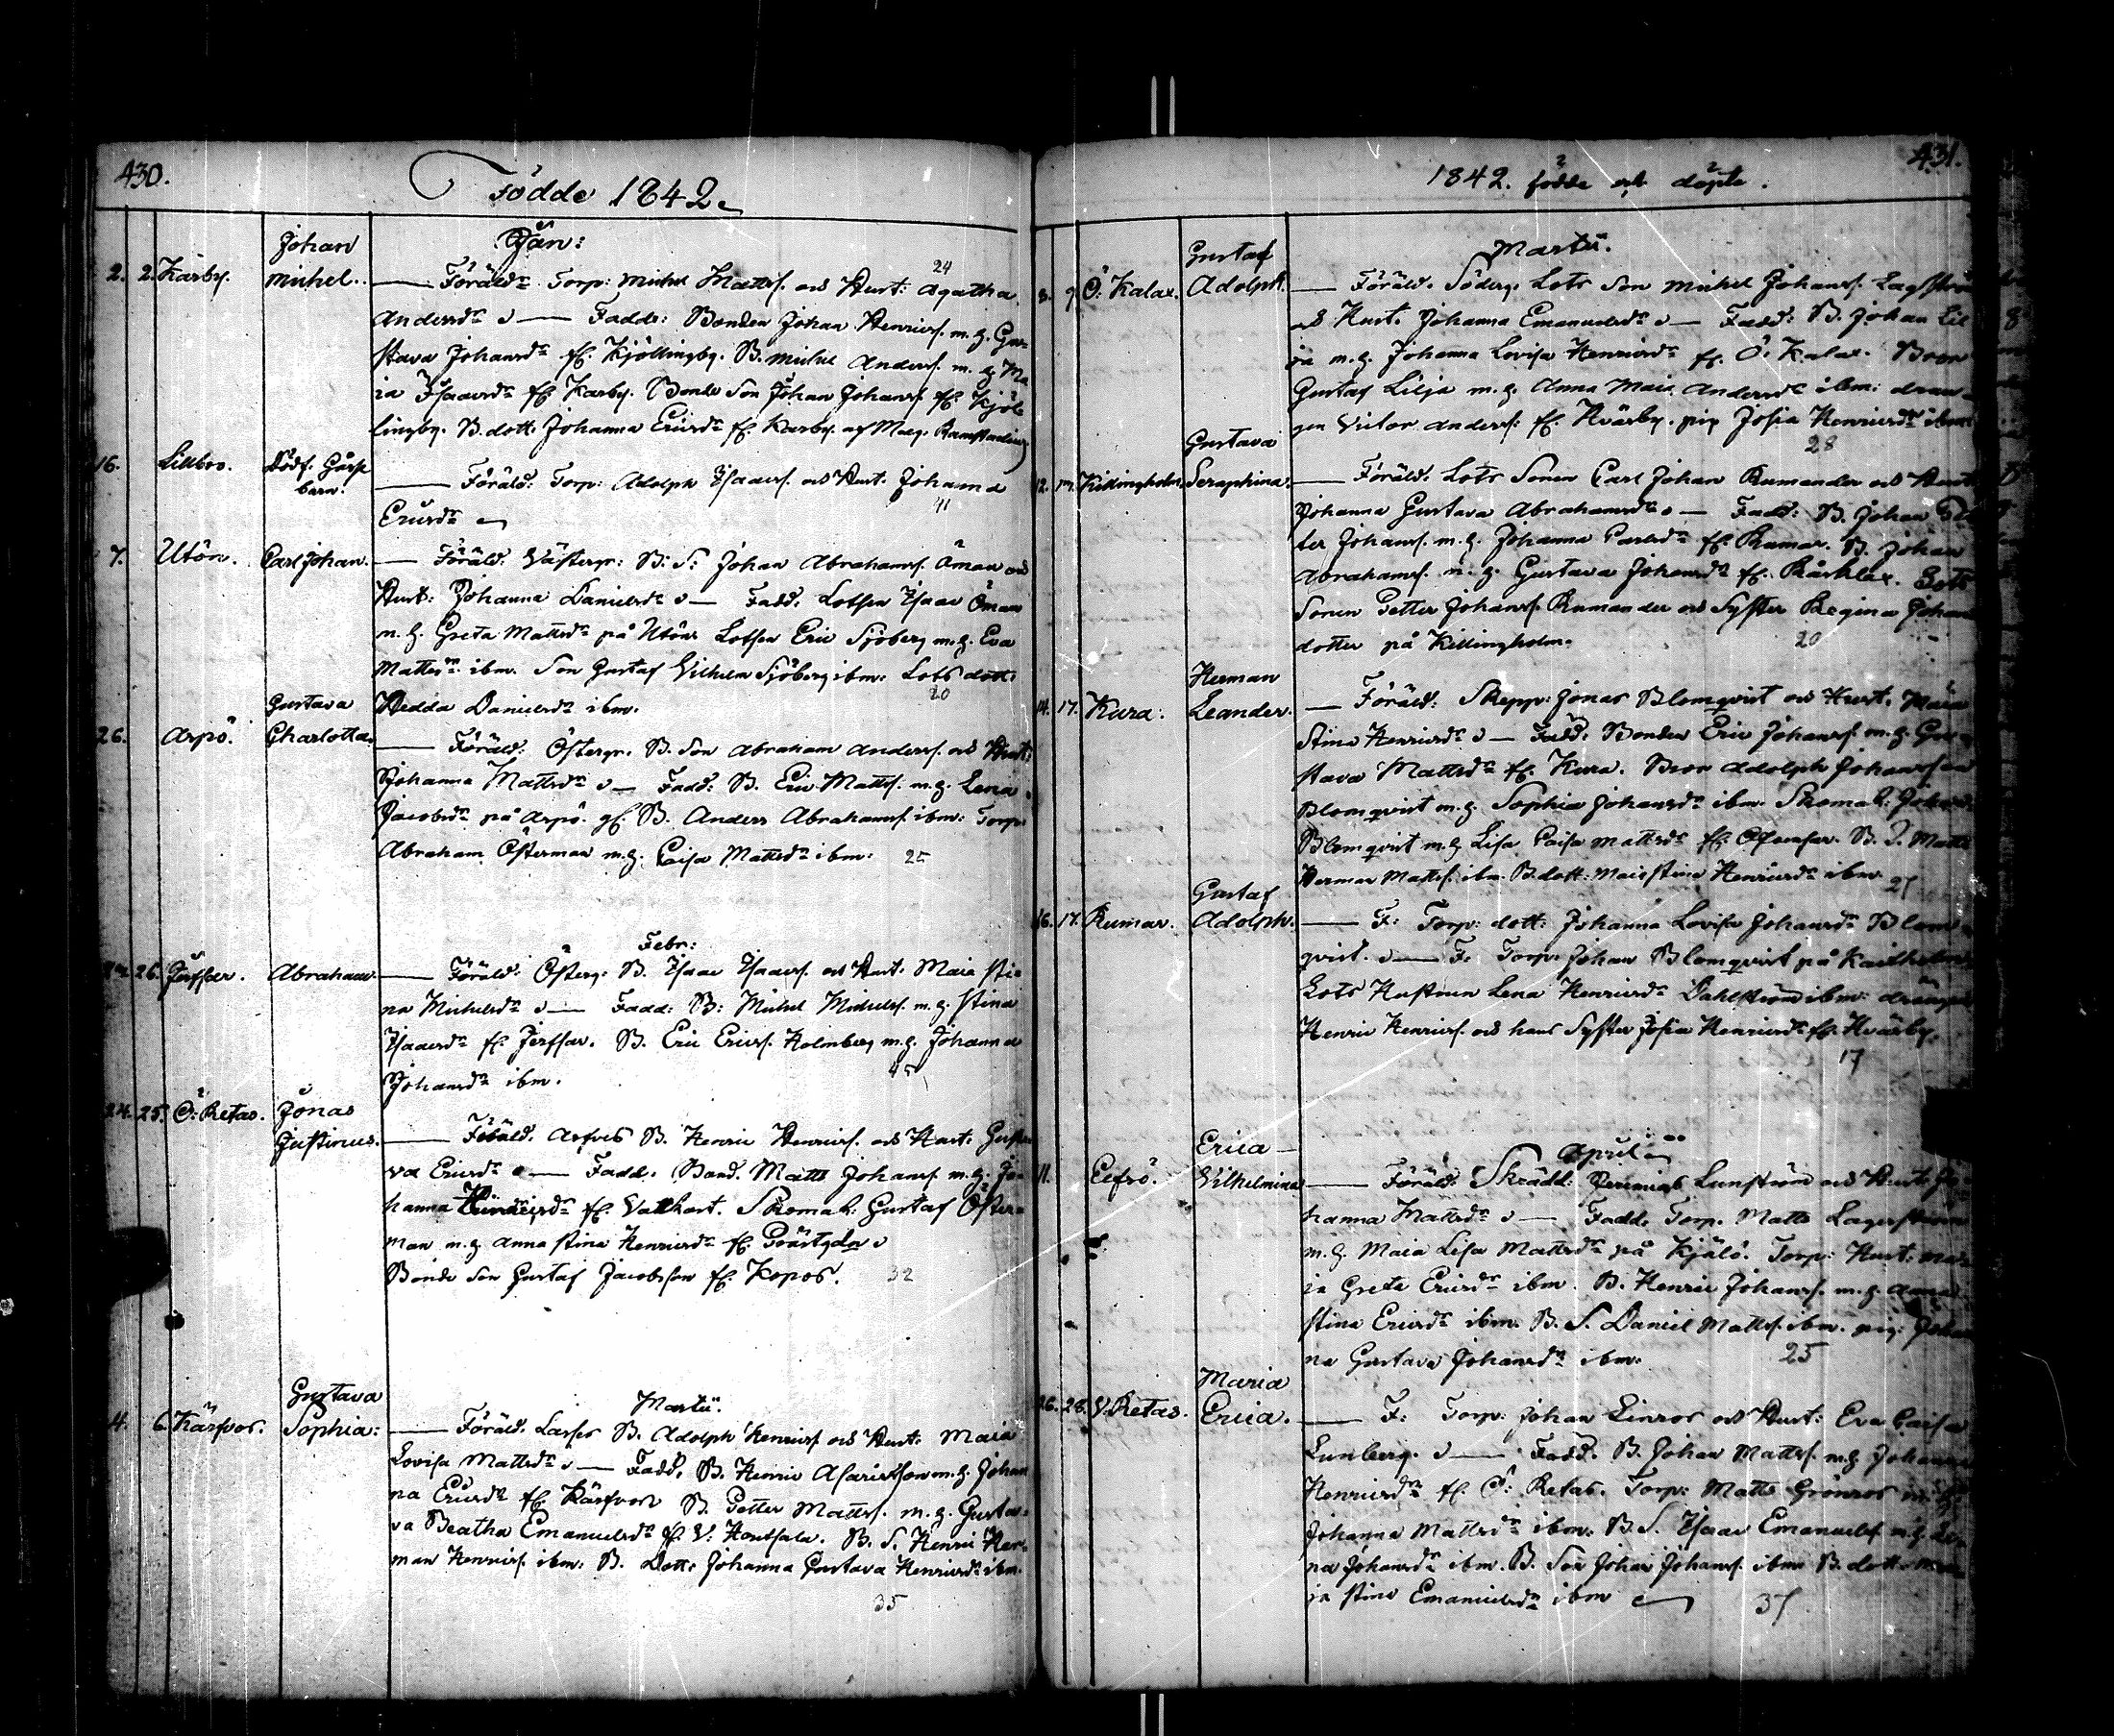 430.
Födde 1842.
Jan:
2. 2. Karby. Johan Michel. — Föräld: Torp: Michel Matts. och Hust: Agatha 24
Andersdr — Fadd: Bonden Johan Henrics. m. h. Gu-
stava Johansdr fr. Kjöllingby. B. Michel Anders. m. h. Ma
ia Isaacsdr fr. Karby. Bonde Son Johan Johans. fr. Kjöl
lingby. B. dott. Johanna Ericsdr fr. Karby.
16. Lillbro. Dödf. Gåsse barn. — Föräld: Torp: Adolph Isaacs. och Hust. Johanna
Ericsdr 41
7. Utön. Carl Johan. — Föräld. Västergr: B. S. Johan Abrahams. Öman och
Hust: Johanna Danielsdr — Fadd. Lotsen Isaac Öman
m. h. Greta Mattsdr på Utön. Lotsen Eric Sjöberg m. h. Eva
Mattsdr ibm. Son Gustaf Vilhelm Sjöberg ibm: Lots dott:
Hedda Danielsdr ibm. 20
26. Arpö. Gustava Charlotta. — Föräld: Östergr. B. Son Abraham Anders. och Hust:
Johanna Mattsdr — Fadd: B. Eric Matts. m. h. Lena
Jacobsdr på Arpö. B. Anders Abrahams. ibm: Torp:
Abraham Österman m. h. Caisa Mattsdr ibm: 25
Febr:
26. Jerfsar. Abraham. — Föräld: Österg: B. Isaac Isaacs. och Hust. Maia Sti-
na Michelsdr — Fadd: B: Michel Michels. m. h. Stina
Isaacsdr fr. Jerfsar. B. Eric Erics. Holmberg m. h. Johanna
Johansdr ibm. 45
24. 25. Ö: Retas. Jonas Justinus. — Föräld. Arfvis B. Henric Henrics. och Hust: Gusta
va Ericsdr — Fadd. Bond. Matts Johans. m. h. Jo-
hanna Henricsdr fr. Vatkast. Skomak: Gustaf Öster-
man m. h. Anna Stina Henricsdr fr. Prästgdn
Bonde Son Gustaf Jacobsson fr. Kopos. 32
Martii.
4. 6. Kärfvos. Gustava Sophia: — Föräld. Lasses B. Adolph Henrics. och Hust: Maia
Lovisa Mattsdr — Fadd. B. Henric Asarictson m. h. Johan
na Ericsdr fr. Kärfvos B. Petter Matts. m. h. Gusta-
va Beatha Emanuelsdr fr. V: Houtsala. B. S. Henric Her-
man Henrics. ibm: B. Dott: Johanna Gustava Henricsdr ibm.
35
431.
1842. födde och döpte.
Martii.
8. 9. Ö: Kalax. Gustaf Adolph. — Föräld. Söderg. Lots Son Michel Johans. Lagström
och Hust. Johanna Emanuelsdr — Fadd: B. Johan Lil
ja m. h. Johanna Lovisa Henricsdr fr. Ö: Kalax. Bror
Gustaf Lilja m. h. Anna Maia Andersdr ibm: dräng
gen Victor Anders: fr. Hvärby. pig. Josia Henricsdr ibm
28
12. 17. Killingholm. Gustava Seraphina. — Föräld. Lots Sonen Carl Johan Rumander och Hust
Johanna Gustava Abrahamsdr — Fadd: B. Johan Pet
ter Johans. m. h. Johanna Carlsdr fr. Rumar. B. Johan
Abrahams. m. h. Gustava Johansdr fr. Bärsklax. Lots
Sonen Petter Johans. Rumander och Syster Regina Johans
dotter på Killingholm. 20
14. 17. Kura. Herman Leander. — Föräld: Skepp: Jonas Blomqvist och Hust. Maia
Stina Henricsdr — Fadd. Bonden Eric Johans. m. h. Gu
stava Mattsdr fr. Kura. Bror Adolph Johansson
Blomqvist m. h. Sophia Johansdr ibm. Skomak: Johan
Blomqvist m. h. Lisa Caisa Mattsdr fr. B. S. Matts
Herman Matts. ibm. B. dott: Maia Stina Henricsdr ibm. 25
16. 17. Rumar. Gustaf Adolph. — F: Torp: dott: Johanna Lovisa Johansdr Blom
qvist. — F: Torp. Johan Blomqvist på
Lots Hustrun Lena Henricsdr Dahlström ibm: drängen
Henric Henrics. och hans Syster Josia Henricsdr fr. Hvärby.
17
April
11. Eefsö. Erica Vilhelmina — Föräld. Skrädd: Jeremias Lunström och Hust: Jo-
hanna Mattsdr — Fadd. Torp. Matts Lagerström
m. h. Maia Lisa Mattsdr på Kjälö. Torp: Hust: Ma-
ia Greta Ericsdr ibm. B. Henric Johans. m. h. Anna
Stina Ericsdr ibm. B. S. Daniel Matts. ibm. pig: Johan
na Gustava Johansdr ibm. 25
26. 28. V. Retas. Maria Erica. — F: Torp: Johan Linros och Hust: Eva Caisa
Lunberg. — Fadd. B. Johan Matts. m. h. Johanna
Henricsdr fr. Ö: Retas. Torp: Matts Grönros m. h.
Johanna Mattsdr ibm. B. S. Isaac Emanuels. m. h. Le-
na Johansdr ibm. B. Son Johan Johans. ibm B. dott Ma-
ia Stina Emanuelsdr ibm 37